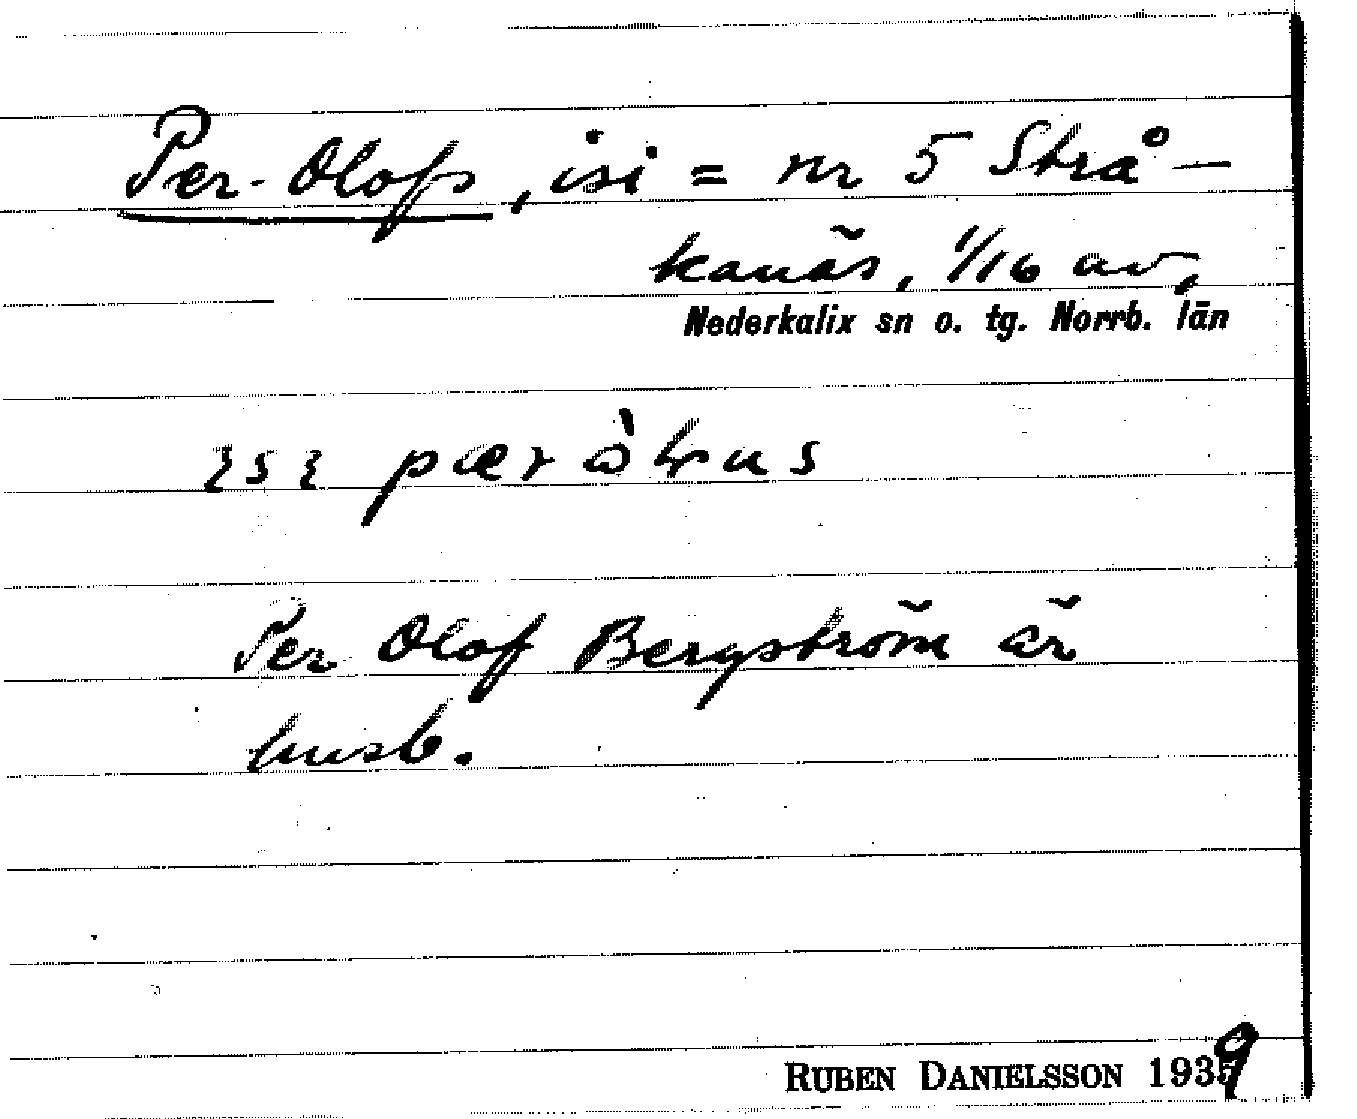 Per-Olofs, isi = nr 5 Strå-
kanäs, 1/16 av,
Nederkalix sn o. tg. Norrb. län
pær
Per Olof Bergström är
husb.
RUBEN DANIELSSON 1939